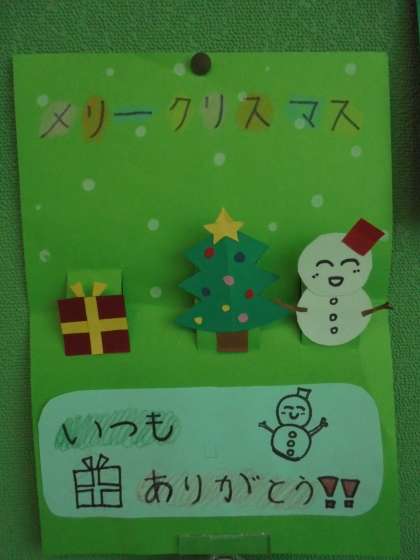 メリークリスマス
いつも
ありがとう!!